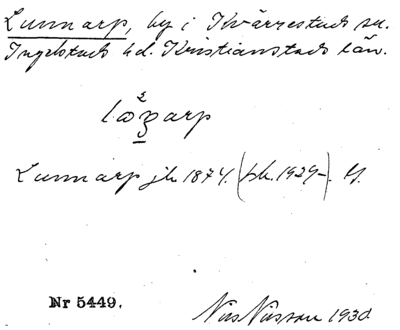 Lunnarp, by i Kvärrestads sn.
Ingelstads hd. Kristianstads län.
Lunnarp jk 1874. (sk. 1929-).
Nr 5449.
Nils Nilsson 1930